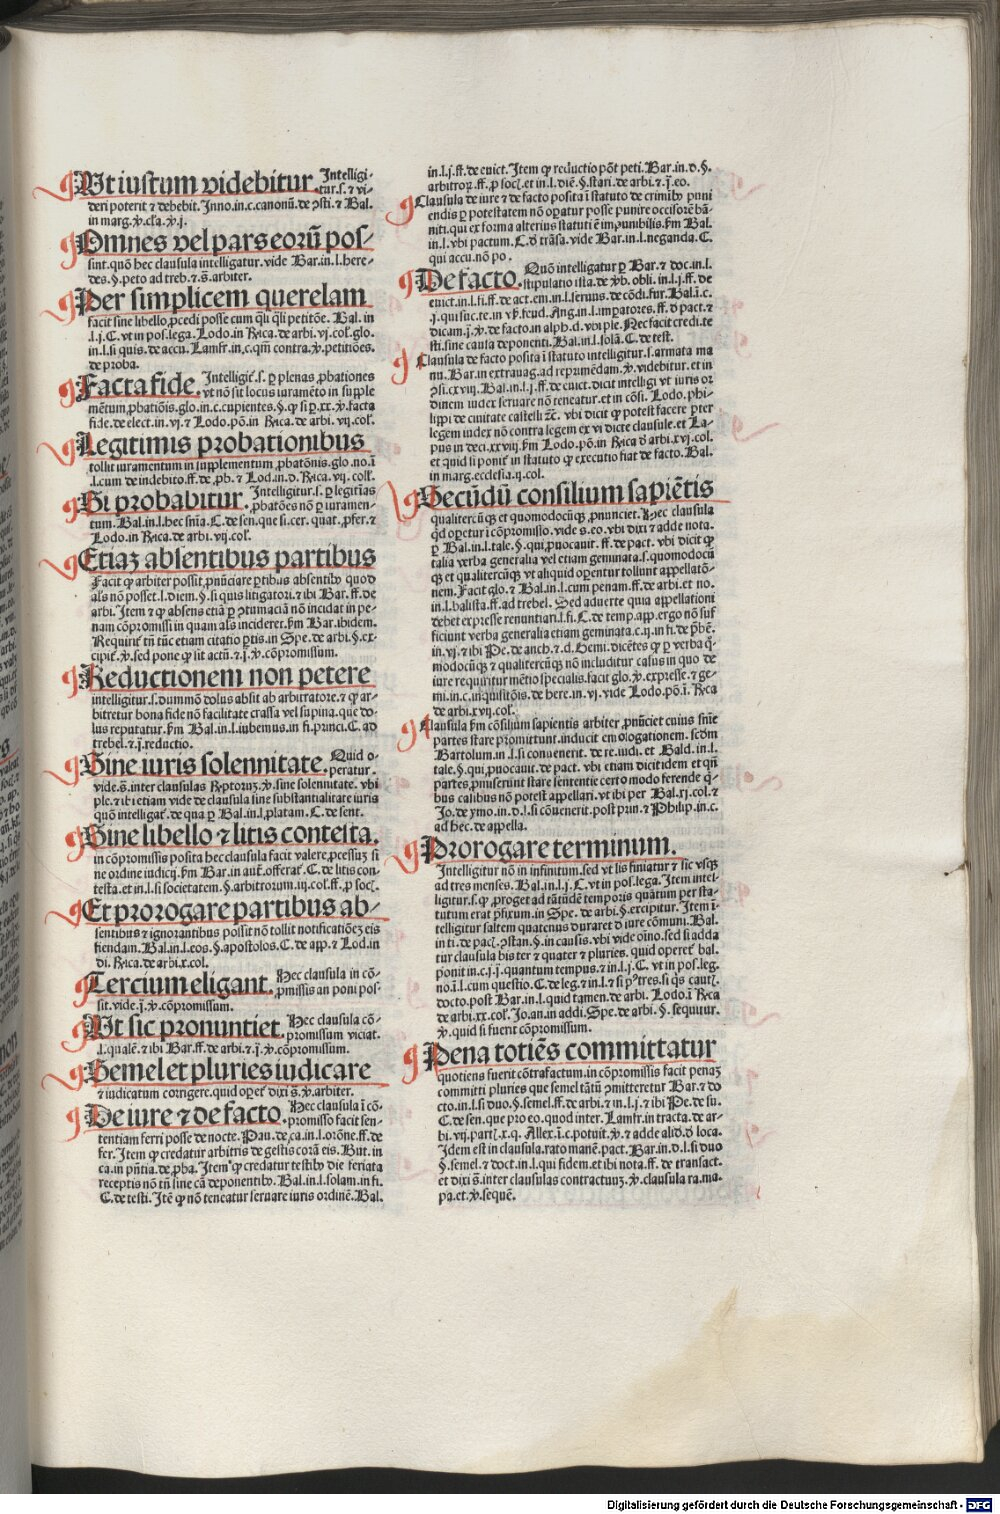 Ut iustum videbitur. Intelligi-
tur.s. ⁊ vi-
deri poterit ⁊ debebit. Inno.in.c.canonū.de ꝯsti.⁊ Bal.
in marg.ꝟ.cla.ꝟ.j.
Omnes vel pars eorū pos-
sint.quō hec clausula intelligatur.vide Bar.in.l.here-
des.§.peto ad treb.⁊.s̄.arbiter.
Per simplicem querelam
facit sine libello ,pcedi posse cum q̄li q̄li petitōe. Bal. in
l.j.C.vt in pos.lega.Lodo.in Rica.de arbi.vj.col.glo.
in.l.si quis.de accu. Lamfr.in.c.qm̄ contra.ꝟ.petitiōes.
de proba.
Facta fide. Intelligit̄.s.ꝑ plenas ,pbationes
vt nō sit locus iuramēto in supple
mētum ,pbatiōis.glo.in.c.cupientes.§.ꝙ si ꝑ.xx.ꝟ.facta
fide.de elect.in.vj.⁊ Lodo.pō.in Rica.de arbi.vij.col.
Legitimis probationibus
tollit iuramentum in supplementum ,pbatōnis.glo.no.ī
l.cum de indebito.ff.de ,pb.⁊ Lod.in.d.Rica.vij.coll.
Si probabitur. Intelligitur.s.ꝑ legitīas
,pbatōes nō ꝑ iuramen-
tum.Bal.in.l.hec sn̄ia.C.de sen.que si.cer.quat.,pfer.⁊
Lodo.in Rica.de arbi.vij.col.
Etiaʒ absentibus partibus
Facit ꝙ arbiter possit ,pnūciare ꝑtibus absentibꝰ quod
als nō posset.l.diem.§.si quis litigatori.⁊ ibi Bar.ff.de
arbi. Item ⁊ ꝙ absens etiā ꝑ ꝯtumaciā nō incidat in pe-
nam cōpromissi in quam als incideret.ẜm Bar.ibidem.
Requirit̄ tn̄ tūc etiam citatio ꝑtis.in Spe.de arbi.§.ex-
cipit̄.ꝟ.sed pone ꝙ sit actū.⁊.j̄.ꝟ.cōpromissum.
Reductionem non petere
intelligitur.s.dummō dolus absit ab arbitratore.⁊ ꝙ ar-
bitretur bona fide nō facilitate crassa vel supina.que do-
lus reputatur.ẜm Bal.in.l.iubemus.in fi.princi.C.ad
trebel.⁊.j̄.reductio.
Sine iuris solennitate. Quid o-
peratur.
vide.s̄.inter clausulas Rptoruʒ.ꝟ.sine solennitate. vbi
ple.⁊ ibi etiam vide de clausula sine substantialitate iuris
quō intelligat̄.de qua ꝑ Bal.in.l.platam.C.de sent.
Sine libello ⁊ litis contesta.
in cōpromissis posita hec clausula facit valere ,pcessuʒ si
ne ordine iudicij.ẜm Bar.in aut̄.offerat̄.C.de litis con-
testa.et in.l.si societatem.§.arbitrorum.iij.col.ff.,p socī.
Et prorogare partibus ab-
sentibus ⁊ ignorantibus possit nō tollit notificatiōeʒ eis
fiendam.Bal.in.l.eos.§.apostolos.C.de app.⁊ Lod.in
di.Rica.de arbi.x.col.
Tercium eligant. Hec clausula in cō-
,pmissis an poni pos-
sit.vide.j̄.ꝟ.cōpromissum.
Ut sic pronuntiet. Hec clausula cō-
promissum viciat.
l.qualē.⁊ ibi Bar.ff.de arbi.⁊.j̄.ꝟ.cōpromissum.
Semel et pluries iudicare
⁊ iudicatum corrigere.quid oꝑet̄ dixi.s̄.ꝟ.arbiter.
De iure ⁊ de facto. Hec clausula ī cō-
promisso facit sen-
tentiam ferri posse de nocte. Pau.de.ca.in.l.orōne.ff.de
fer. Item ꝙ credatur arbitris de gestis corā eis. But.in
ca.in pn̄tia.de ,pba. Item ꝙ credatur testibꝰ die feriata
receptis nō tn̄ sine cā deponentibꝰ.Bal.in.l.solam.in fi.
C.de testi. Itē ꝙ nō teneatur seruare iuris ordinē.Bal.
in.l.j.ff.de euict. Item ꝙ reductio pōt peti.Bar.in.d.§.
arbitroꝝ.ff.,p socī.et in.l.diē.§.stari.de arbi.⁊.j̄.eo.
Clausula de iure ⁊ de facto posita ī statuto de crimibꝰ puni
endis ꝑ potestatem nō oꝑatur posse punire occisorē bā-
niti.qui ex forma alterius statuti ē impunibilis.ẜm Bal.
in.l.vbi pactum.C.ď trāsa.vide Bar.in.l.neganda.C.
qui accu.nō po.
De facto. Quō intelligatur ꝑ Bar.⁊ doc.in.l.
stipulatio ista.de ꝟb.obli.in.l.j.ff.de
euict.in.l.fi.ff.de act.em.in.l.seruus.de cōdi.fur.Bal.ī.c.
j.qui suc.te.in vꝑ.feud. Ang.in.l.impatores.ff.ď pact.⁊
dicam.j̄.ꝟ.de facto.in alpb.d.vbi ple. Nec facit credi.te
sti.sine causa deponenti. Bal.in.l.solā.C.de test.
Clausula de facto posita ī statuto intelligitur.s.armata ma
nu. Bar.in extrauag.ad reprimēdam.ꝟ.videbitur.et in
ꝯsi.cxviij.Bal.in.l.j.ff.de euict.dicit intelligi vt iuris or
dinem iudex seruare nō teneatur.et in cōsi.Lodo.phi-
lippi de ciuitate castelli ⁊c̄. vbi dicit ꝙ potest facere ꝑter
legem iudex nō contra legem ex vi dicte clausule.et La-
pus in deci.xxviij.ẜm Lodo.pō.in Rica ď arbi.xvj.col.
et quid si ponit̄ in statuto ꝙ executio fiat de facto.Bal.
in marg.ecclesia.ij.col.
Secūdū consilium sapiētis
qualitercūqꝫ et quomodocūqꝫ ,pnunciet. Hec clausula
qd̄ oꝑetur ī cōpromissio.vide s̄.eo.vbi dixi ⁊ adde nota.
ꝑ Bal.in.l.tale.§.qui ,puocauit.ff.de pact. vbi dicit ꝙ
talia verba generalia vel etiam geminata.s.quomodocū
qꝫ et qualitercūqꝫ vt aliquid oꝑentur tollunt appellatō-
nem. Facit glo.⁊ Bal.in.l.cum penam.ff.de arbi.et no.
in.l.balista.ff.ad trebel. Sed aduerte quia appellationi
debet expresse renuntiari.l.fi.C.de temp.app.ergo nō suf
ficiunt verba generalia etiam geminata.c.ij.in fi.de p̄bē.
in.vj.⁊ ibi Pe.de anch.⁊.d.Gemi.dicētes ꝙ ꝑ verba q̄-
modocūqꝫ ⁊ qualitercūqꝫ nō includitur casus in quo de
iure requiritur mētio specialis.facit glo.ꝟ.expresse.⁊ ge-
mi.in.c.inquisitōis.de here.in.vj.vide Lodo.pō.ī.Rica
de arbi.xvij.col.
Clausula ẜm cōsilium sapientis arbiter ,pnūciet cuius sn̄ie
partes stare promittunt.inducit emologationem.scdm
Bartolum.in.l.si conuenerit.de re.iudi.et Bald.in.l.
tale.§.qui ,puocauit.de pact. vbi etiam dicit idem et qn̄
partes ,pmiserunt stare sententie certo modo ferende q̄-
bus casibus nō potest appellari.vt ibi per Bal.xj.col.⁊
Jo.de ymo.in.d.l.si cōuenerit.post prin.⁊ Philip.in.c.
ad hec.de appella.
Prorogare terminum.
Intelligitur nō in infinitum.sed vt lis finiatur ⁊ sic vsqꝫ
ad tres menses. Bal.in.l.j.C.vt in pos.lega. Item intel-
ligitur.s.ꝙ ,proget ad tātūdē temporis quātum per sta-
tutum erat p̄fixum.in Spe.de arbi.§.excipitur. Item ī-
telligitur saltem quatenus duraret ď iure cōmuni. Bal.
in ti.de pacī.ꝯstan.§.in causis.vbi vide oīno.sed si adda
tur clausula bis ter ⁊ quater ⁊ pluries. quid operet̄ bal.
ponit in.c.j.j̄.quantum tempus.⁊ in.l.j.C.vt in pos.leg.
no.ī.l.cum questio.C.de leg.⁊ in.l.⁊ si pꝰtres.si q̄s cautī.
docto.post Bar.in.l.quid tamen.de arbi.Lodo.ī Rica
de arbi.xx.col.Jo.an.in addi.Spe.de arbi.§.sequitur.
ꝟ.quid si fuerit cōpromissum.
Pena totiēs committatur
quotiens fuerit cōtrafactum.in cōpromissis facit penaʒ
committi pluries que semel tātū ꝯmitteretur Bar.⁊ do
cto.in.l.si duo.§.semel.ff.de arbi.⁊ in.l.j.⁊ ibi Pe.de su.
C.de sen.que pro eo.quod inter. Lamfr.in tracta.de ar-
bi.vij.partī.x.q. Allex.ī.c.potuit.ꝟ.⁊ adde alid.ď loca.
Idem est in clausula.rato manē.pact.Bar.in.d.l.si duo
§.semel.⁊ doct.in.l.qui fidem.et ibi nota.ff.de transact.
et dixi s̄.inter clausulas contractuuʒ.ꝟ.clausula ra.ma.
pa.et.ꝟ.sequē.
Digitalisierung gefördert durch die Deutsche Forschungsgemeinschaft - DFG